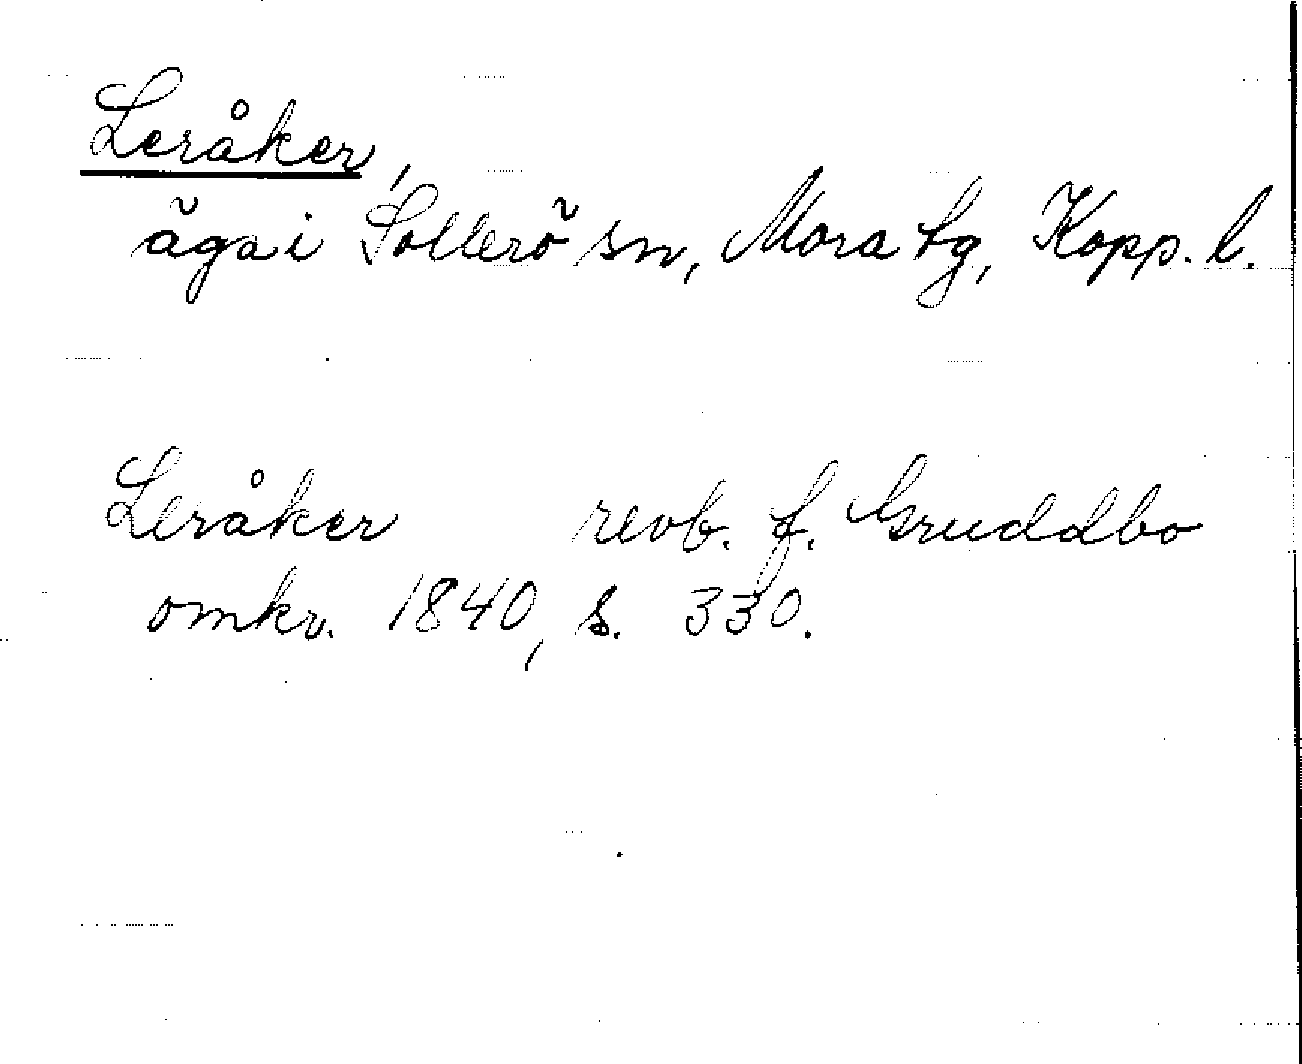 Leråker,
äga i Sollerö sn, Mora tg, Kopp. l.
Leråker revb. f. Gruddbo
omkr. 1840, s. 330.